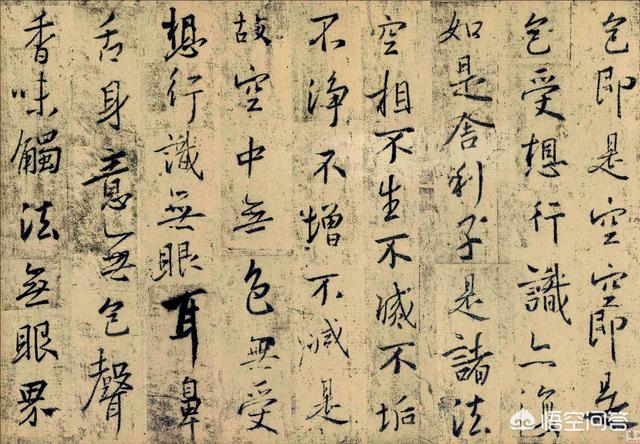 色即是空空即是
色受想行識亦復
如是舍利子是諸法
空相不生不滅不垢
不淨不增不減是
故空中無色無受
想行識無眼耳鼻
舌身意無色聲
香味觸法無眼界
悟空问答